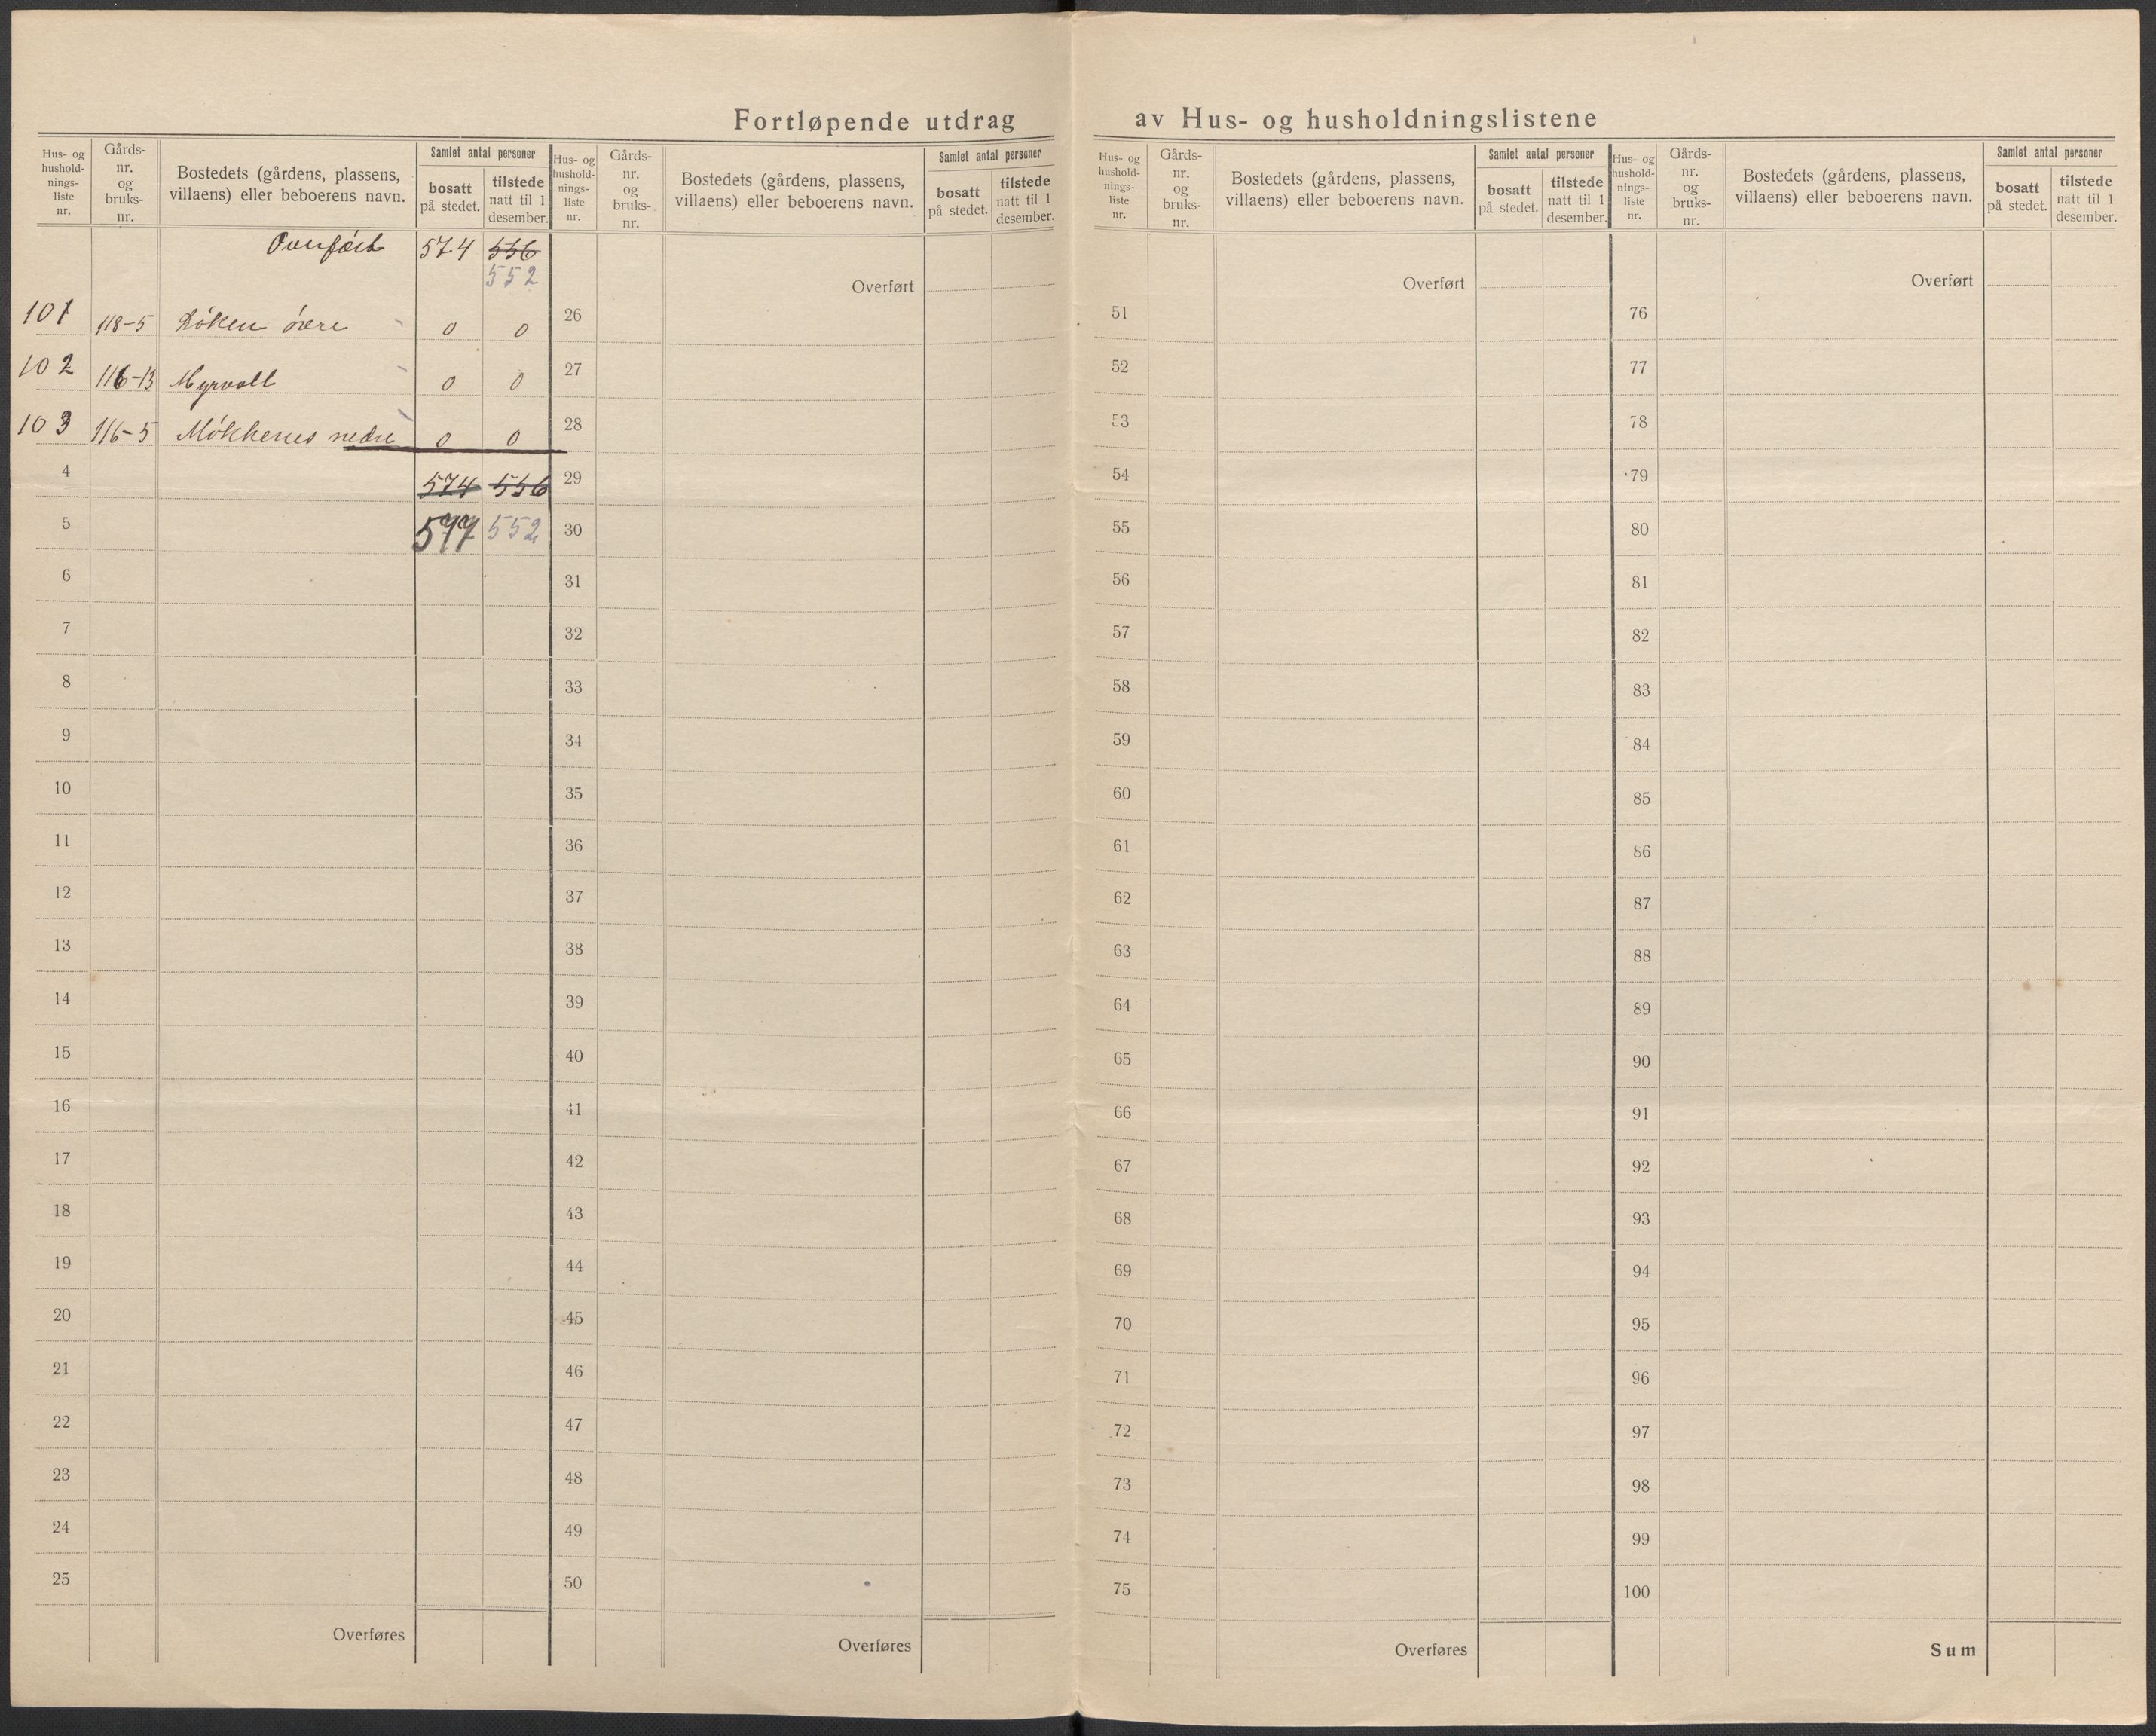 Fortløpende utdrag av Hus- og husholdningslistene
Hus- og hushold-nings-liste nr.
Gårds-nr. og bruks-nr.
Bostedets (gårdens, plassens, villaens) eller beboerens navn.
Samlet antal personer
bosatt på stedet.
tilstede natt til 1 desember.
Overført 574 556
552
101 118-5 Løken øvre 0 0
102 116-13 Myrvoll 0 0
103 116-5 Møkkenes nedre 0 0
4 574 556
5 577 552
6
7
8
9
10
11
12
13
14
15
16
17
18
19
20
21
22
23
24
25
Overføres
Hus- og hushold-nings-liste nr.
Gårds-nr. og bruks-nr.
Bostedets (gårdens, plassens, villaens) eller beboerens navn.
Samlet antal personer
bosatt på stedet.
tilstede natt til 1 desember.
Overført
26
27
28
29
30
31
32
33
34
35
36
37
38
39
40
41
42
43
44
45
46
47
48
49
50
Overføres
Hus- og hushold-nings-liste nr.
Gårds-nr. og bruks-nr.
Bostedets (gårdens, plassens, villaens) eller beboerens navn.
Samlet antal personer
bosatt på stedet.
tilstede natt til 1 desember.
Overført
51
52
53
54
55
56
57
58
59
60
61
62
63
64
65
66
67
68
69
70
71
72
73
74
75
Overføres
Hus- og hushold-nings-liste nr.
Gårds-nr. og bruks-nr.
Bostedets (gårdens, plassens, villaens) eller beboerens navn.
Samlet antal personer
bosatt på stedet.
tilstede natt til 1 desember.
Overført
76
77
78
79
80
81
82
83
84
85
86
87
88
89
90
91
92
93
94
95
96
97
98
99
100
Sum